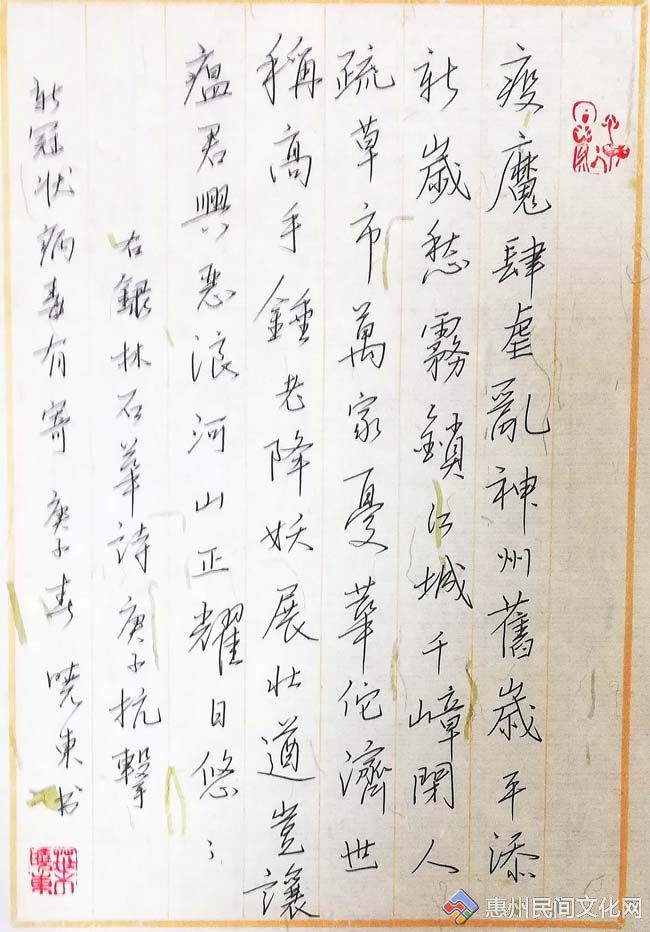 疫魔肆虐亂神州舊歲平添
新歲愁霧鎖江城千嶂閉人
疏草市萬家憂華佗濟世
稱高手鍾老降妖展壯遒豈讓
瘟君興惡浪河山正耀日悠〻
右銀林石華詩庚子抗擊
新冠狀病毒有寄 庚子春 曉東书
葉曉東
惠州民间文化网